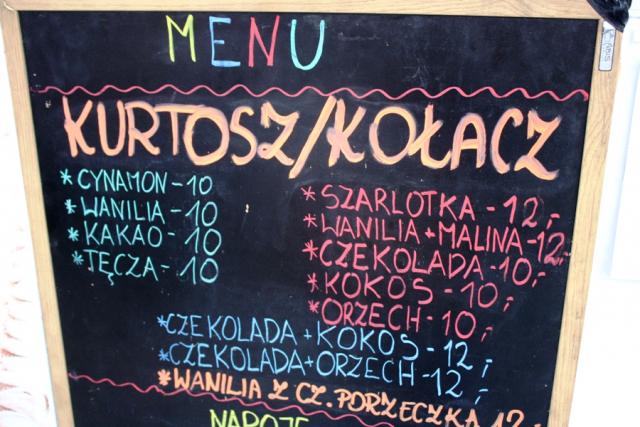 MENU
KURTOSZ/KOŁACZ
*CYNAMON-10
*WANILIA-10
*KAKAO-10
*TĘCZA-10
*SZARLOTKA-12,-
*WANILIA+MALINA-12,-
*CZEKOLADA-10,-
*KOKOS-10,-
*ORZECH-10,-
*CZEKOLADA+KOKOS-12,-
*CZEKOLADA+ORZECH-12,-
*WANILIA Z CZ. PORZECZKĄ 12,-
NAPOJE